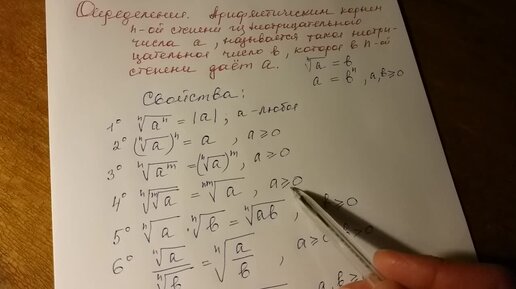 Определение. Арифметическим корнем
n-ой степени из неотрицательного
числа a, называется такое неотри-
цательное число b, которое в n-ой
степени даёт a. ⁿ√a = b
a = bⁿ, a,b ≥ 0
Свойства:
1° ⁿ√(aⁿ) = |a|, a - любое
2° (ⁿ√a)ⁿ = a, a ≥ 0
3° ⁿ√(aᵐ) = (ⁿ√a)ᵐ, a ≥ 0
4° ⁿ√(ᵐ√a) = ⁿᵐ√a, a ≥ 0
5° ⁿ√a · ⁿ√b = ⁿ√(ab), b ≥ 0
6° ⁿ√a / ⁿ√b = ⁿ√(a/b), a ≥